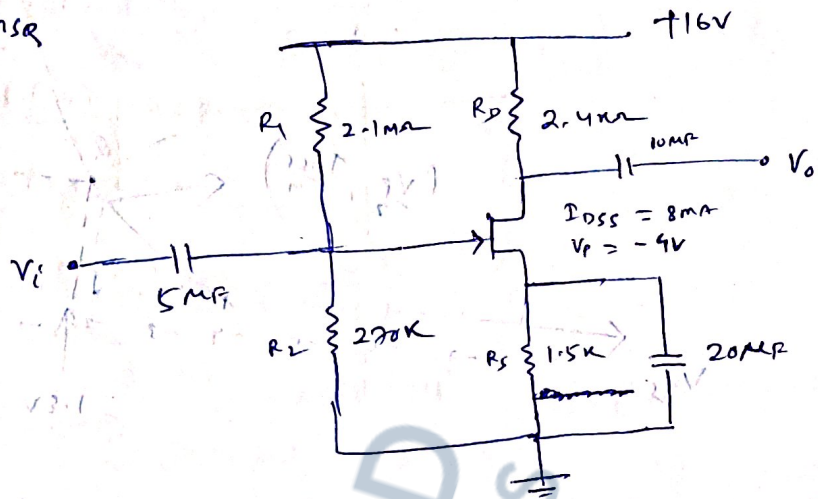 +16V
R1
2.1MΩ
RD
2.4KΩ
10MF
Vo
IDSS = 8mA
VP = -4V
Vi
5MF
R2
270K
RS
1.5K
20MF
D
S